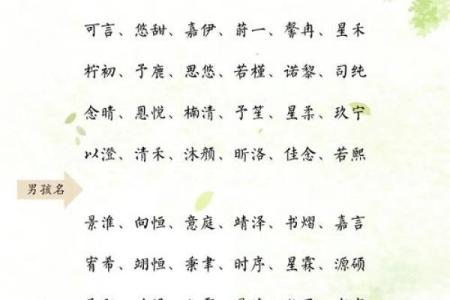 可言、悠甜、嘉伊、蔚一、馨冉、星禾
柠初、予鹿、思悠、若槿、诺黎、司纯
念晴、恩悦、楠清、予笙、星柔、玖宁
以澄、清禾、沐颜、昕洛、佳念、若熙
男孩名
景淮、向恒、意庭、靖泽、书熠、嘉言
宥希、翊恒、秉聿、时序、星霖、源硕